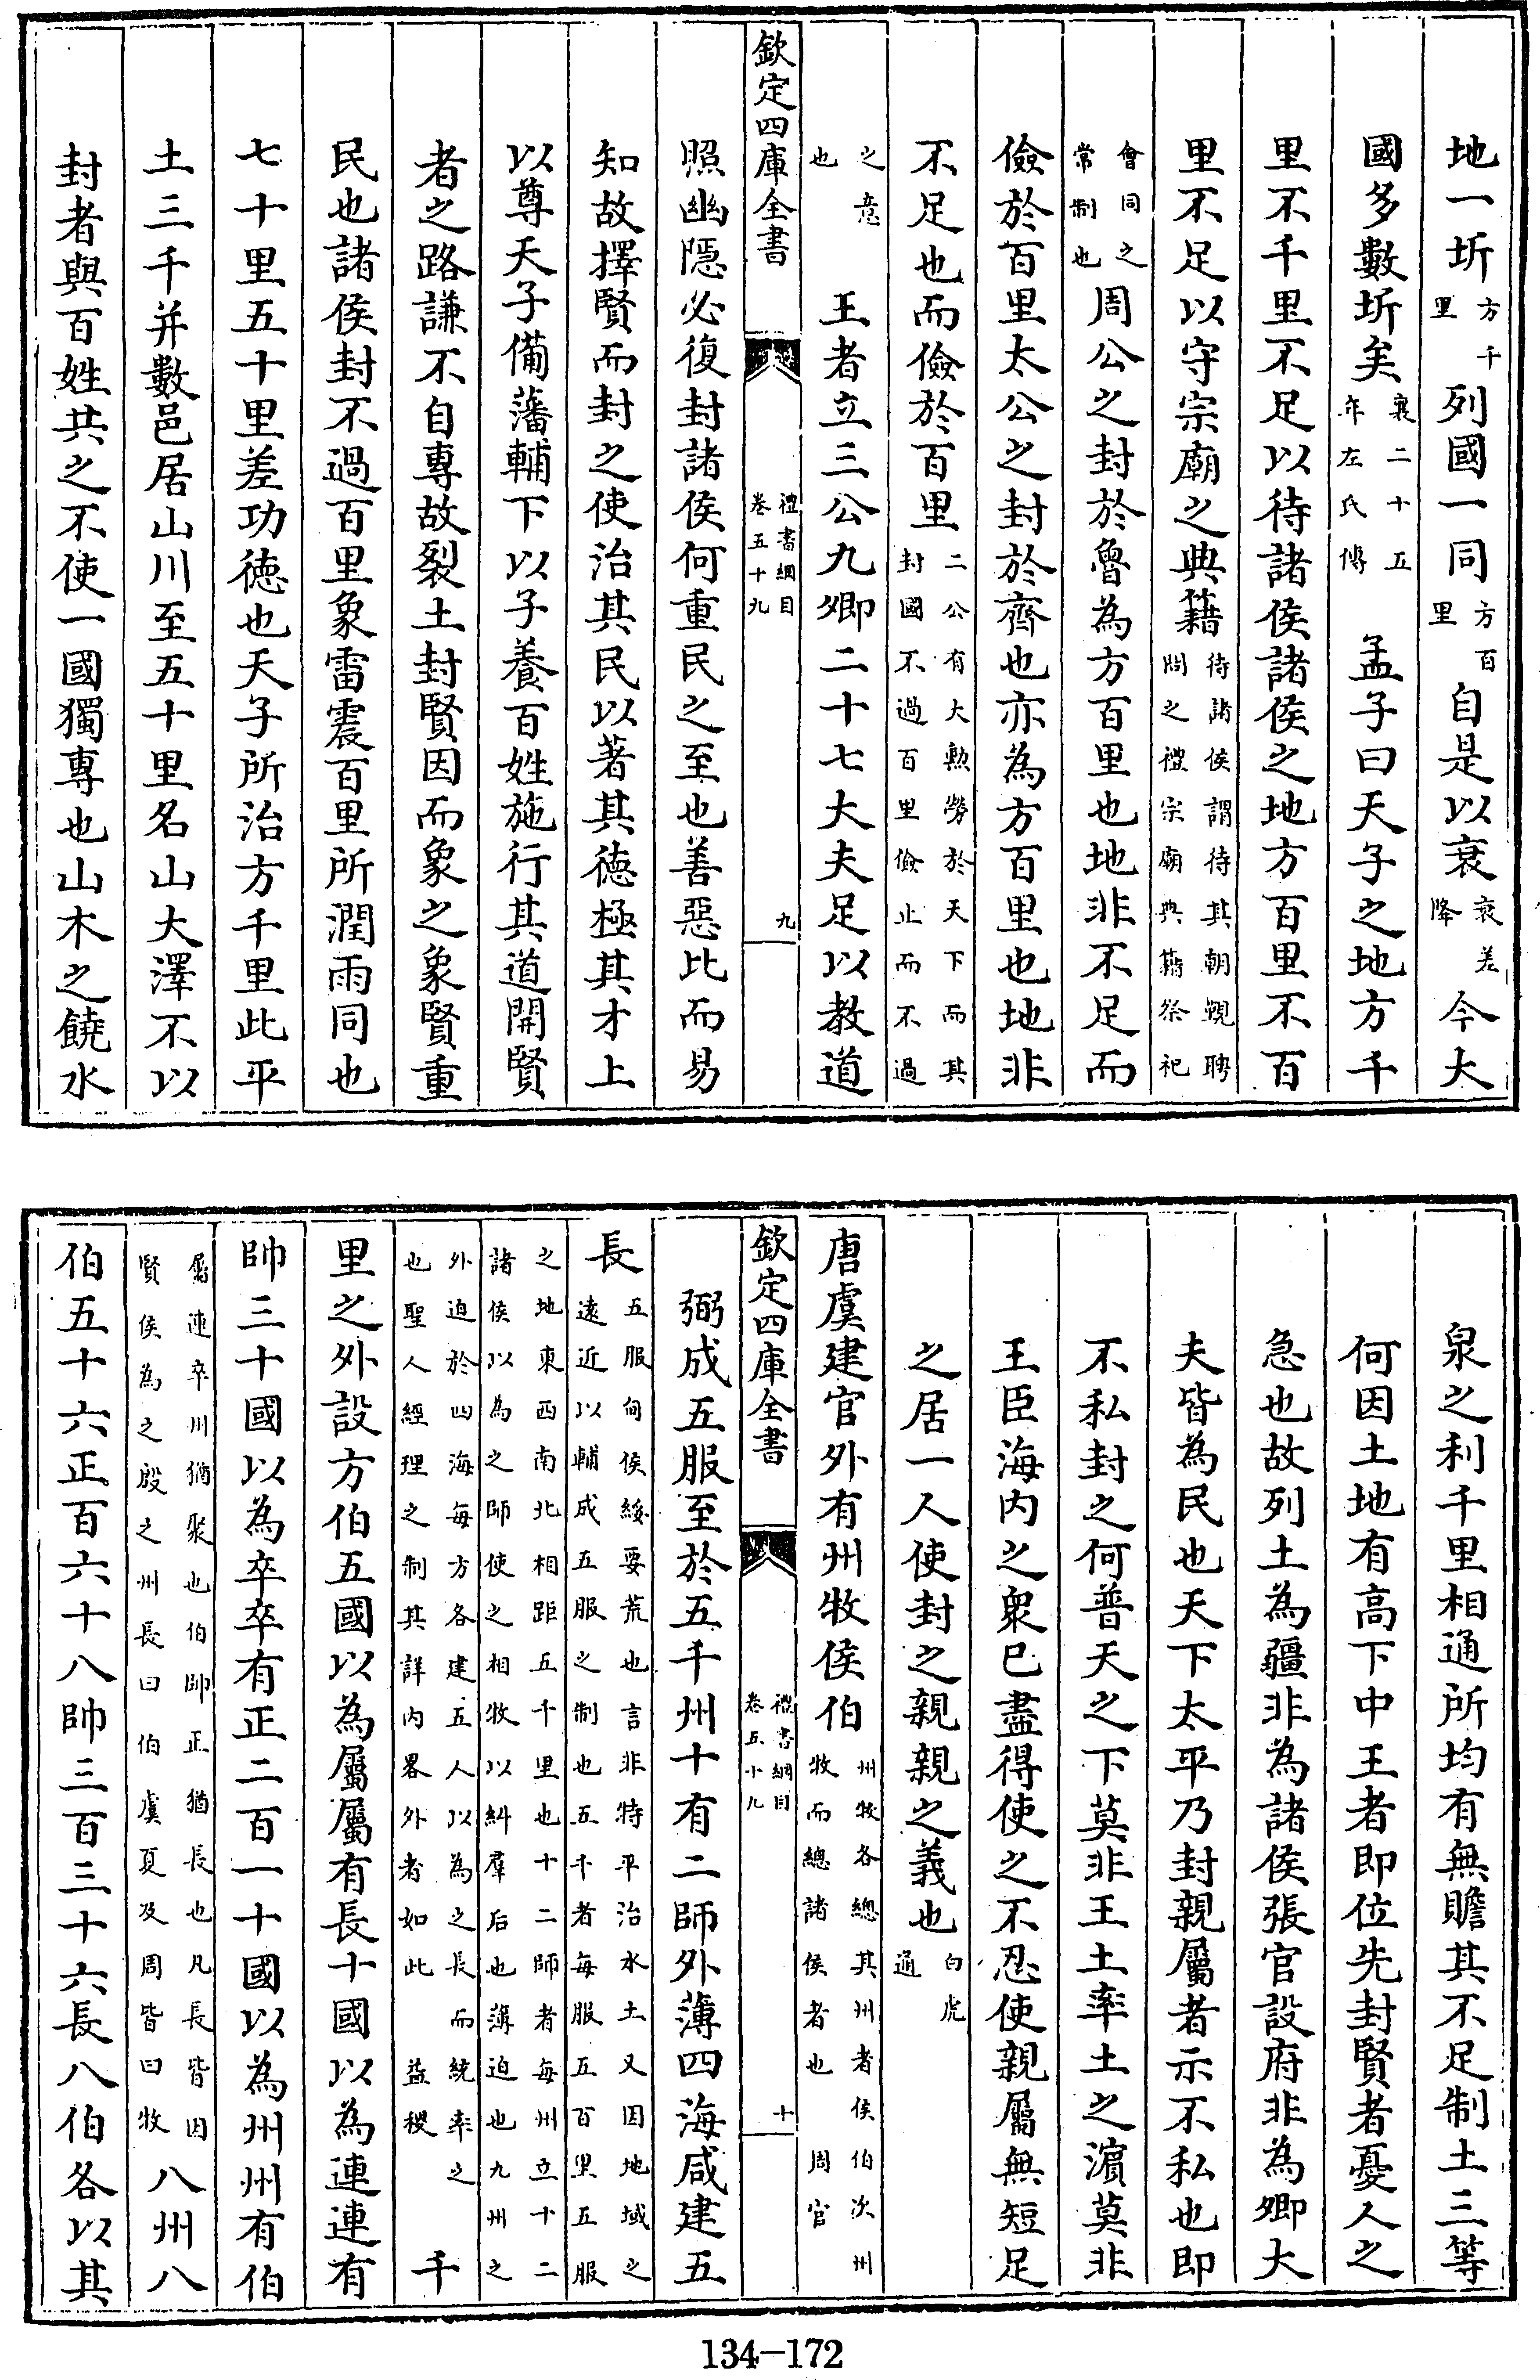 地一圻方千里列國一同方百里自是以衰衰差降今大
國多數圻矣襄二十五年左氏傳　孟子曰天子之地方千
里不千里不足以待諸侯諸侯之地方百里不百
里不足以守宗廟之典籍待諸侯謂待其朝覲聘問之禮宗廟典籍祭祀
會同之常制也周公之封於魯為方百里也地非不足而
儉於百里太公之封於齊也亦為方百里也地非
不足也而儉於百里二公有大勲勞於天下而其封國不過百里儉止而不過
之意也　王者立三公九卿二十七大夫足以教道
欽定四庫全書　禮書綱目卷五十九　九
照幽隱必復封諸侯何重民之至也善惡比而易
知故擇賢而封之使治其民以著其徳極其才上
以尊天子備藩輔下以子養百姓施行其道開賢
者之路謙不自專故裂土封賢因而象之象賢重
民也諸侯封不過百里象雷震百里所潤雨同也
七十里五十里差功徳也天子所治方千里此平
土三千并數邑居山川至五十里名山大澤不以
封者與百姓共之不使一國獨專也山木之饒水
泉之利千里相通所均有無贍其不足制土三等
何因土地有高下中王者即位先封賢者憂人之
急也故列土為疆非為諸侯張官設府非為卿大
夫皆為民也天下太平乃封親屬者示不私也即
不私封之何普天之下莫非王土率土之濵莫非
王臣海内之衆已盡得使之不忍使親屬無短足
之居一人使封之親親之義也白虎通
唐虞建官外有州牧侯伯州牧各總其州者侯伯次州牧而總諸侯者也　周官
欽定四庫全書　禮書綱目卷五十九　十
弼成五服至於五千州十有二師外薄四海咸建五
長五服甸侯綏要荒也言非特平治水土又因地域之遠近以輔成五服之制也五千者每服五百里五服
之地東西南北相距五千里也十二師者每州立十二諸侯以為之師使之相牧以糾羣后也薄迫也九州之
外迫於四海每方各建五人以為之長而統率之也聖人經理之制其詳内畧外者如此　益稷　千
里之外設方伯五國以為屬屬有長十國以為連連有
帥三十國以為卒卒有正二百一十國以為州州有伯
屬連卒州猶聚也伯帥正猶長也凡長皆因賢侯為之殷之州長曰伯虞夏及周皆曰牧八州八
伯五十六正百六十八帥三百三十六長八伯各以其
134-172